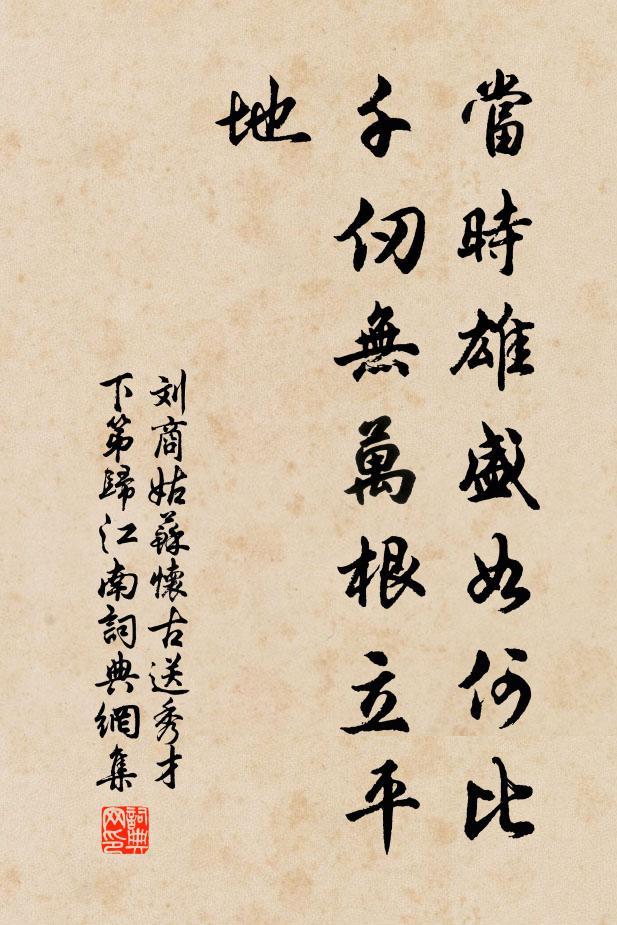 當時雄盛如何比
千仞無萬根立平
地
刘商姑蘇懷古送秀才
下第歸江南詞典網集
詞典
网印